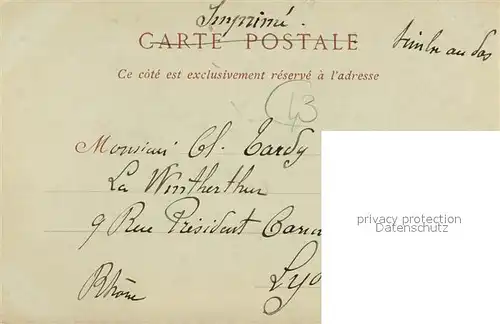 Imprimé.
CARTE POSTALE
timbre au dos
Ce côté est exclusivement réservé à l'adresse
43
Monsieur Cl. Tardy
La Wintherthur
9 Rue Président Carn
Lyo
Rhône
privacy protection
Datenschutz